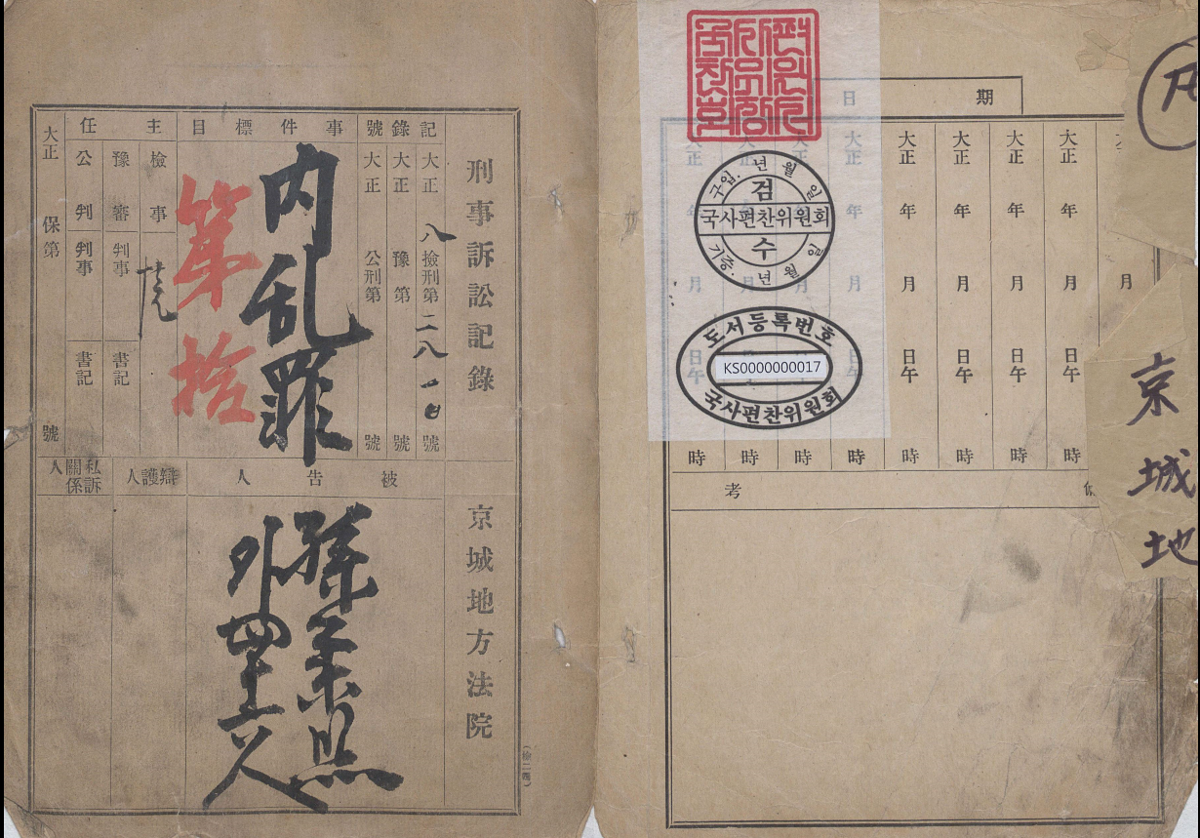 刑事訴訟記錄
京城地方法院
記錄號
大正 八 檢刑第 二八一 號
大正 豫第 號
大正 公刑第 號
事件標目
内乱罪
第拾
主任
檢事
豫審判事 書記
公判判事 書記
大正 保第 號
被告人
孫秉熙
外四十六人
辯護人
私訴關係人
期日
大正 年 月 日午 時
大正 年 月 日午 時
大正 年 月 日午 時
大正 年 月 日午 時
大正 年 月 日午 時
大正 年 月 日午 時
大正 年 月 日午 時
考
구입. 년 월 일
검
국사편찬위원회
수
기증. 년 월 일
도서등록번호
KS0000000017
국사편찬위원회
京城地